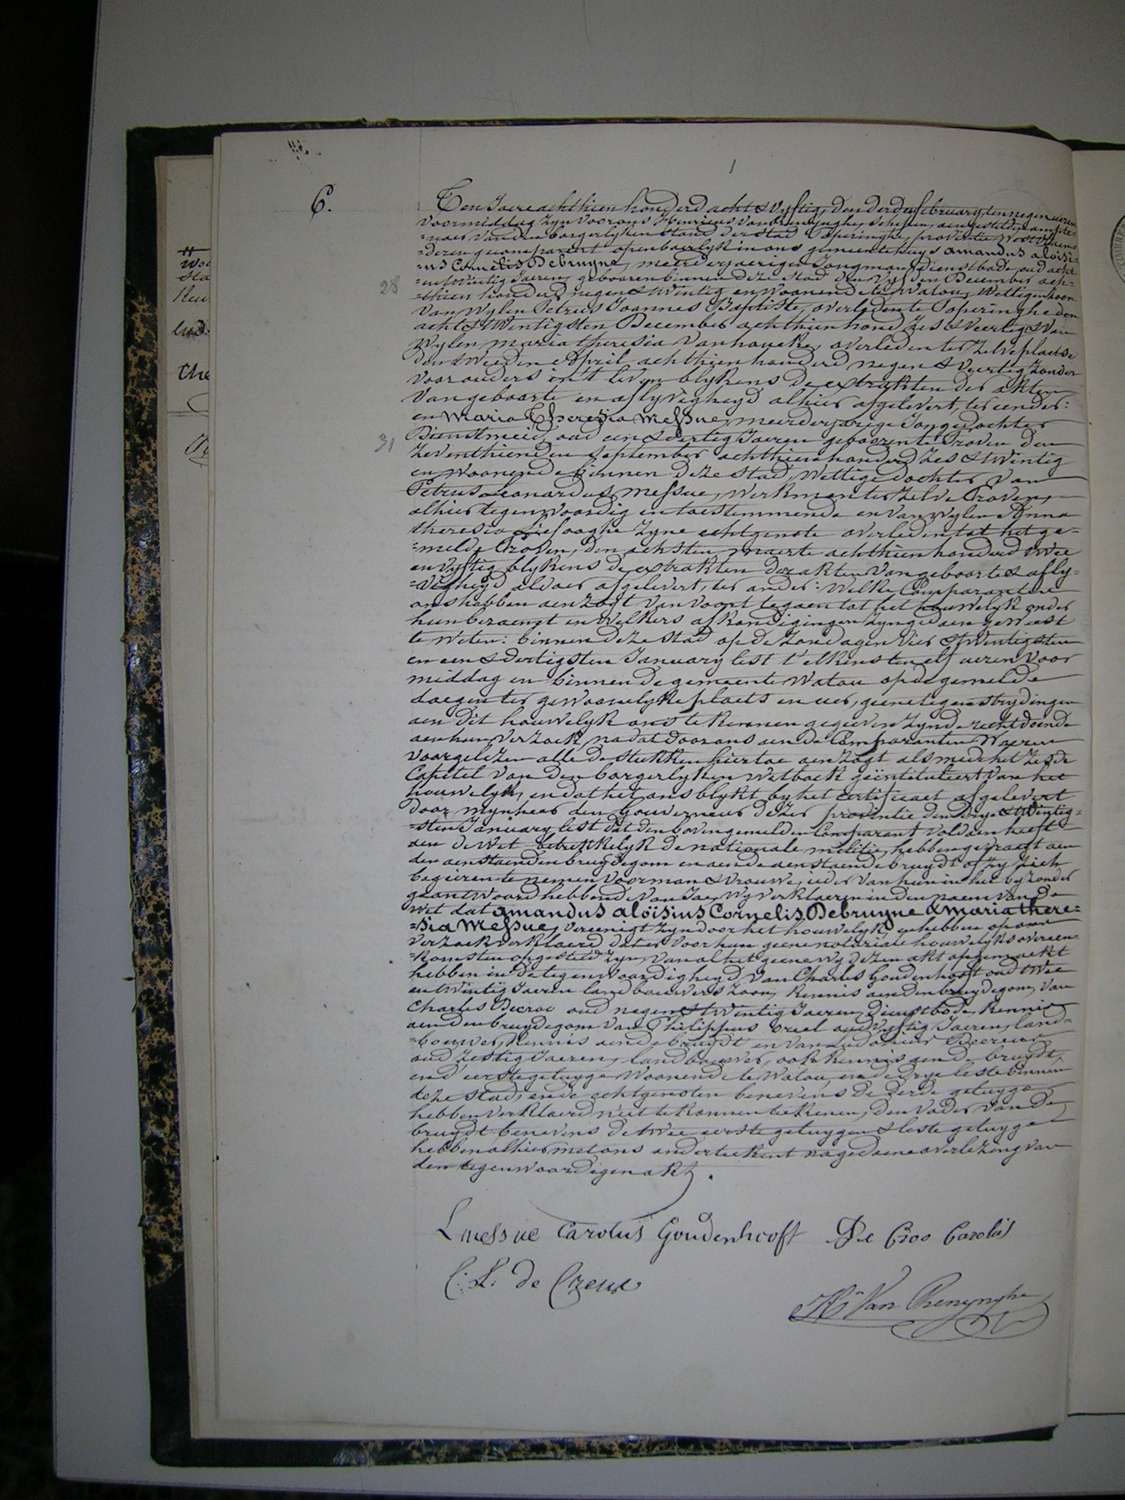 6.
Ten Jaere achthien honderd acht & vyftig, den derden february, ten negen ueren
voormiddag zyn voor ons Henricus Van Renynghe, schepen,
van den borgerlyken stand der stad Poperinghe, provintie West Vlaen-
=deren gecompareert openbaerlyk in ons gemeentehuys amandus aloisi-
=us Cornelis Debruyne, meerderjaerigen Jongman, dienstbode, oud acht
28
en twintig Jaeren, gebooren binnen deze stad den December ach-
=thien honderd negen & twintig en woonende te Watou, Wettigen zoon
van wylen Petrus Joannes Baptiste, overleden te Poperinghe den
acht & twintigsten December achthien hond. zes & veertig & van
wylen maria theresia Vanhoucke, overleden ter zelve plaetse
den tweeden April achthien honderd negen & veertig zonder
voorouders in 't leven blykens de extrakten der akten
van geboorte en aflyvigheyd alhier afgelevert ter eender:
en Maria Theresia Messue, meerderjarige Jongedochter
31
Dienstmeid, oud een & dertig Jaeren geboren te Proven den
zeventhienden september achthien honderd zes & twintig
en woonende binnen deze stad, Wettige dochter van
Petrus Leonardus Messue, Werkman ter zelve Proven,
alhier tegenwoordig en toestemmende en van wylen Anna
theresia zyne echtgenote overleden tot het ge-
=melde Proven, den achsten maerte achthien honderd twee
en vyftig blykens de extrakten der akten van geboorte & afly-
=vigheyd alvoer afgelevert ter ander: Welke Comparanten
ons hebben aenzogt van voort te gaen tot het houwelyk onder
hun beraemt en welkers afkondigingen zyn gedaen geweest
te weten: binnen deze stad op de zondagen vier & twintigsten
en een & dertigsten January lest t'elkens ten elf ueren voor
middag en binnen de gemeente Watou op de gemelde
daegen ter gewoonelyke plaets en uer, geene tegenstrydingen
aen dit houwelyk ons te kennen gegeven zynde rechtdoende
aen hun verzoek, na dat door ons aen de Comparanten waeren
voorgelezen alle de stukken hiertoe aenzogt als mede het zesde
Capitel van den borgerlyken Wetboek geintituleert van het
houwelyk, en dat het ons blykt by het certificaet afgelevert
door mynheer den Gouverneur dezer provintie den drye & twintig-
=sten January lest dat den bovengemelden Comparant voldaen heeft
aen de Wet betrekkelyk de nationale militie, hebben gevraegt aen
den aenstaenden bruydegom en aen de aenstaende bruydt of zy zich
begeeren te nemen voor man & vrouwe, ieder van hun in het byzonder
geantwoord hebbende van Jae, wy verklaeren in den naem van de
Wet dat amandus aloïsius Cornelis Debruyne & Maria there-
=sia Messue, vereenigt zyn door het houwelyk en hebben op ons
verzoek verklaerd dat er voor hun geene notariale houwelyks overeen-
=komsten opgesteld zyn. Van al het geene wy dezen akt opgemaekt
hebben in de tegenwoordigheyd van Charles Goudenhooft oud twee
en twintig Jaeren landbouwers zoon, kennis aen den bruydegom, van
Charles Decroo oud negen & twintig Jaeren, dienstbode, kennis
aen den bruydegom van Philippus oud vyftig Jaeren, land-
=bouwer, kennis aen de bruydt en van
oud zestig Jaeren, landbouwer, ook kennis aen de bruydt,
en d'eerste getuyge woonende te Watou, en de drye leste binnen
deze stad, en de echtgenoten benevens de derde getuyge
hebben verklaerd niet te konnen teekenen, den vader van de
bruydt benevens de twee eerste getuygen & leste getuyge
hebben alhier met ons onderteekent na gedaene overlezing van
den tegenwoordigen akt.
L Messue Carolus Goudenhooft De Croo Carolus
C: L: de Creus
Hri Van Renynghe